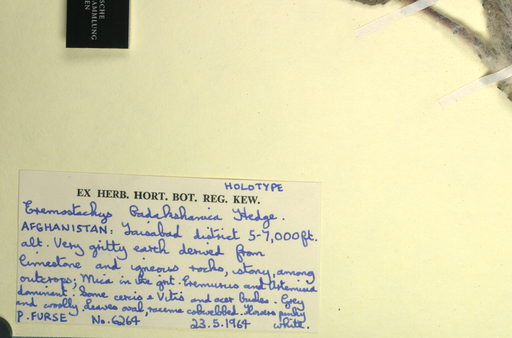 SCHE
SAMMLUNG
EN
HOLOTYPE
EX HERB. HORT. BOT. REG. KEW.
Eremostachys Badakshanica Hedge.
AFGHANISTAN: Faisabad district 5-7,000ft.
alt. Very gritty earth derived from
limestone and igneous rocks, stony, among
outcrops; Mica in the grit. Eremurus and Artemisia
dominant. Some cercis & Vitis and acer bushes. Grey
and woolly, leaves oval, raceme cobwebbed. Flowers pinky
white.
P. FURSE No. 6264 23.5.1964